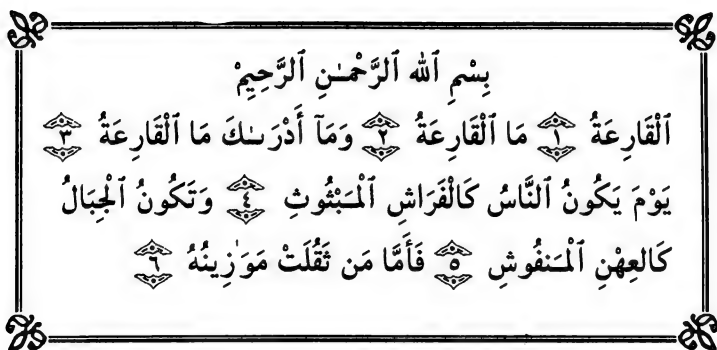 بِسْمِ ٱللهِ ٱلرَّحْمَـٰنِ ٱلرَّحِيمْ
ٱلْقَارِعَةُ ١ مَا ٱلْقَارِعَةُ ٢ وَمَآ أَدْرَىـٰكَ مَا ٱلْقَارِعَةُ ٣
يَوْمَ يَكُونُ ٱلنَّاسُ كَالْفَرَاشِ ٱلْمَبْثُوثِ ٤ وَتَكُونُ ٱلْجِبَالُ
كَالعِهْنِ ٱلْمَنفُوشِ ٥ فَأَمَّا مَن ثَقُلَتْ مَوَٰزِينُهُ ٦